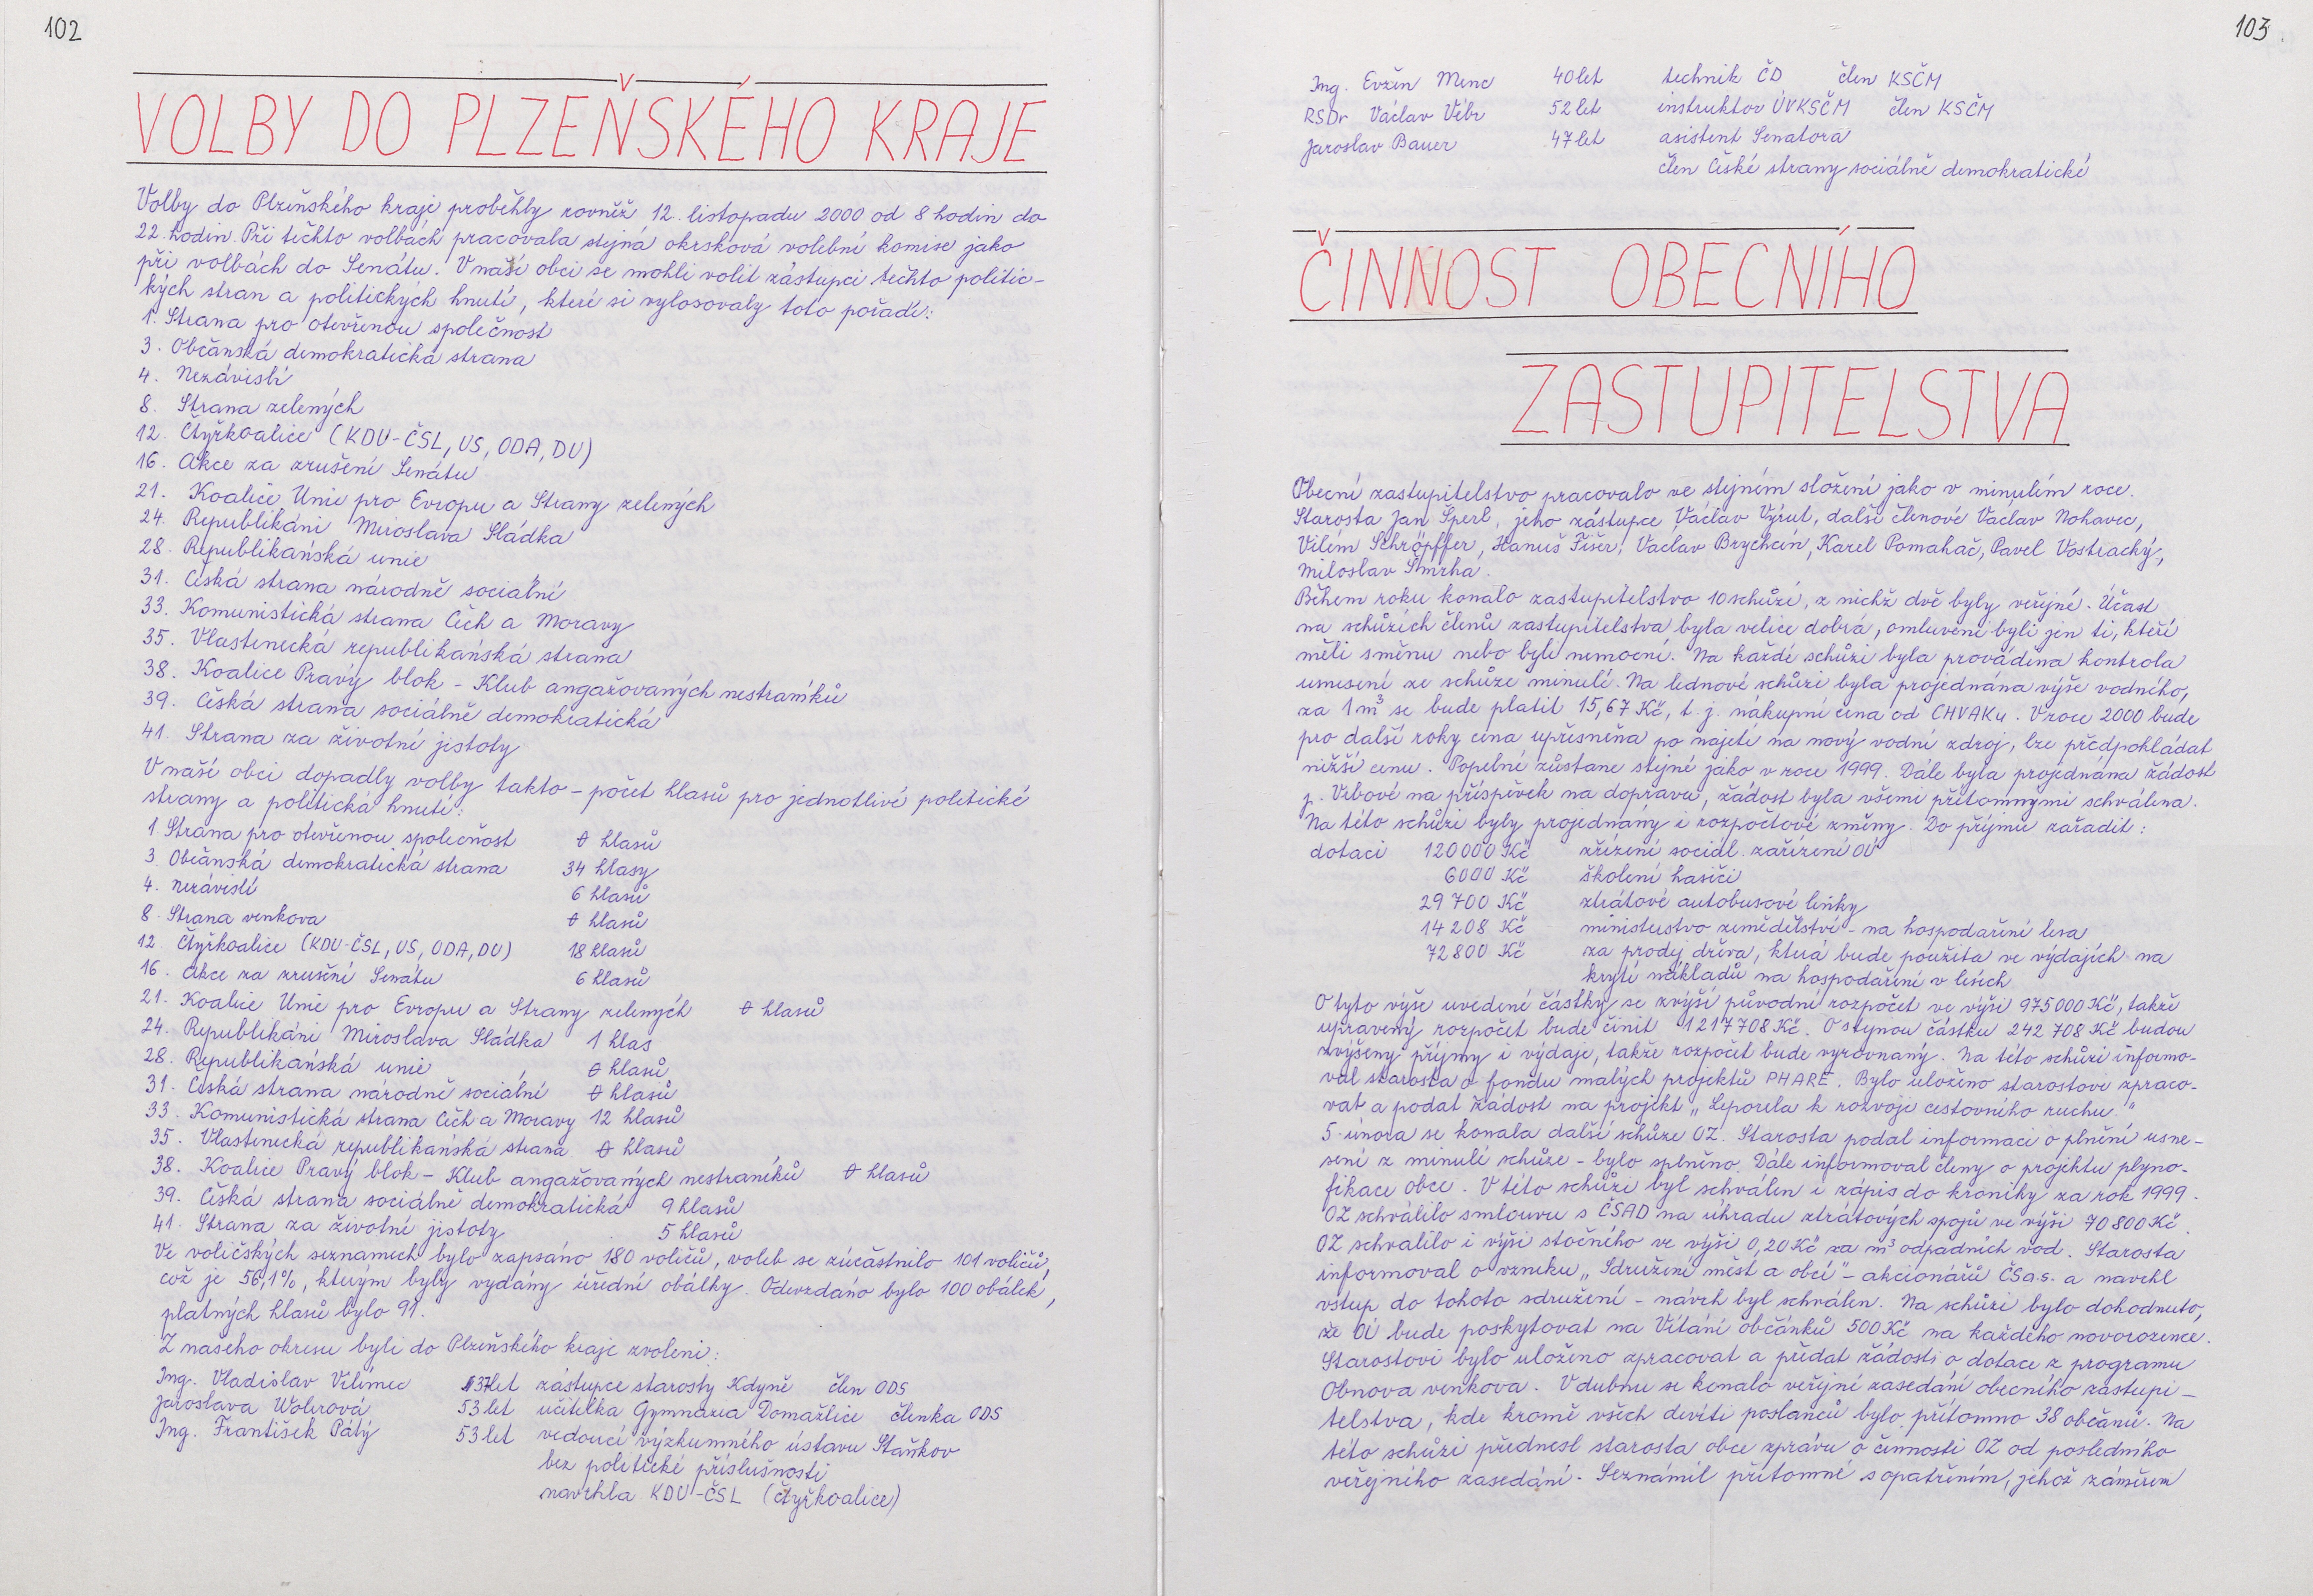 102
VOLBY DO PLZEŇSKÉHO KRAJE
Volby do Plzeňského kraje proběhly rovněž 12. listopadu 2000 od 8 hodin do
22. hodin. Při těchto volbách pracovala stejná okrsková volební komise jako
při volbách do Senátu. V naší obci se mohli volit zástupci těchto politic-
kých stran a politických hnutí, které si vylosovaly toto pořadí:
1. Strana pro otevřenou společnost
3. Občanská demokratická strana
4. Nezávislí
8. Strana zelených
12. Čtyřkoalice (KDU-ČSL, US, ODA, DU)
16. Akce za zrušení Senátu
21. Koalice Unie pro Evropu a Strany zelených
24. Republikáni Miroslava Sládka
28. Republikánská unie
31. Česká strana národně sociální
33. Komunistická strana Čech a Moravy
35. Vlastenecká republikánská strana
38. Koalice Pravý blok - Klub angažovaných nestraníků
39. Česká strana sociálně demokratická
41. Strana za životní jistoty
V naší obci dopadly volby takto - počet hlasů pro jednotlivé politické
strany a politická hnutí:
1. Strana pro otevřenou společnost 0 hlasů
3. Občanská demokratická strana 34 hlasy
4. Nezávislí 6 hlasů
8. Strana venkova 0 hlasů
12. Čtyřkoalice (KDU-ČSL, US, ODA, DU) 18 hlasů
16. Akce za zrušení Senátu 6 hlasů
21. Koalice Unie pro Evropu a Strany zelených 0 hlasů
24. Republikáni Miroslava Sládka 1 hlas
28. Republikánská unie 0 hlasů
31. Česká strana národně sociální 0 hlasů
33. Komunistická strana Čech a Moravy 12 hlasů
35. Vlastenecká republikánská strana 0 hlasů
38. Koalice Pravý blok - Klub angažovaných nestraníků 0 hlasů
39. Česká strana sociálně demokratická 9 hlasů
41. Strana za životní jistoty 5 hlasů
Ve voličských seznamech bylo zapsáno 180 voličů, voleb se zúčastnilo 101 voličů,
což je 56,1%, kterým byly vydány úřední obálky. Odevzdáno bylo 100 obálek,
platných hlasů bylo 91.
Z našeho okresu byli do Plzeňského kraje zvoleni:
Ing. Vladislav Vilimec 37 let zástupce starosty Kdyně člen ODS
Jaroslava Wollerová 53 let učitelka Gymnázia Domažlice členka ODS
Ing. František Pátý 53 let vedoucí výzkumného ústavu Staňkov
bez politické příslušnosti
navrhla KDU-ČSL (čtyřkoalice)
103
Ing. Evžin Menc 40 let technik ČD člen KSČM
RSDr Václav Vébr 52 let instruktor ÚVKSČM člen KSČM
Jaroslav Bauer 47 let asistent Senátora
člen České strany sociálně demokratické
ČINNOST OBECNÍHO
ZASTUPITELSTVA
Obecní zastupitelstvo pracovalo ve stejném složení jako v minulém roce.
Starosta Jan Šperl, jeho zástupce Václav Výrut, další členové Václav Nohavec,
Vilém Schröpffer, Hanuš Fišer, Václav Brychcín, Karel Pomahač, Pavel Vostracký,
Miloslav Smrha.
Během roku konalo zastupitelstvo 10 schůzí, z nichž dvě byly veřejné. Účast
na schůzích členů zastupitelstva byla velice dobrá, omluveni byli jen ti, kteří
měli směnu nebo byli nemocní. Na každé schůzi byla prováděna kontrola
usnesení ze schůze minulé. Na lednové schůzi byla projednána výše vodného,
za 1m³ se bude platit 15,67 Kč, t.j. nákupní cena od CHVAKu. V roce 2000 bude
pro další roky cena upřesněna po najetí na nový vodní zdroj, lze předpohládat
nižší cenu. Popelné zůstane stejné jako v roce 1999. Dále byla projednána žádost
p. Vrbové na příspěvek na dopravu, žádost byla všemi přítomnými schválena.
Na této schůzi byly projednány i rozpočtové změny. Do příjmu zařadit:
dotaci 120000 Kč zřízení sociál. zařízení OÚ
6000 Kč školení hasiči
29 700 Kč ztrátové autobusové linky
14 208 Kč ministerstvo zemědělství - na hospodaření lesa
72 800 Kč za prodej dřeva, která bude použita ve výdajích na
krytí nákladů na hospodaření v lesích
O tyto výše uvedené částky se zvýší původní rozpočet ve výši 975 000 Kč, takže
upravený rozpočet bude činit 1 217 708 Kč. O stejnou částku 242 708 Kč budou
zvýšeny příjmy i výdaje, takže rozpočet bude vyrovnaný. Na této schůzi informo-
val starosta o fondu malých projektů PHARE. Bylo uloženo starostovi zpraco-
vat a podat žádost na projekt „Leporela k rozvoje cestovního ruchu."
5. února se konala další schůze OZ. Starosta podal informaci o plnění usne-
sení z minulé schůze - bylo splněno. Dále informoval členy o projektu plyno-
fikace obce. V této schůzi byl schválen i zápis do kroniky za rok 1999.
OZ schválilo smlouvu s ČSAD na úhradu ztrátových spojů ve výši 70 800 Kč.
OZ schválilo i výši stočného ve výši 0,20 Kč za m³ odpadních vod. Starosta
informoval o vzniku „Sdružení měst a obcí" - akcionářů ČSa.s. a navrhl
vstup do tohoto sdružení - návrh byl schválen. Na schůzi bylo dohodnuto,
že OÚ bude poskytovat na Vítání občánků 500 Kč na každého novorozence.
Starostovi bylo uloženo zpracovat a předat žádosti o dotace z programu
Obnova venkova. V dubnu se konalo veřejné zasedání obecního zastupi-
telstva, kde kromě všech devíti poslanců bylo přítomno 38 občanů. Na
této schůzi přednesl starosta obce zprávu o činnosti OZ od posledního
veřejného zasedání. Seznámil přítomné s opatřením, jehož záměrem